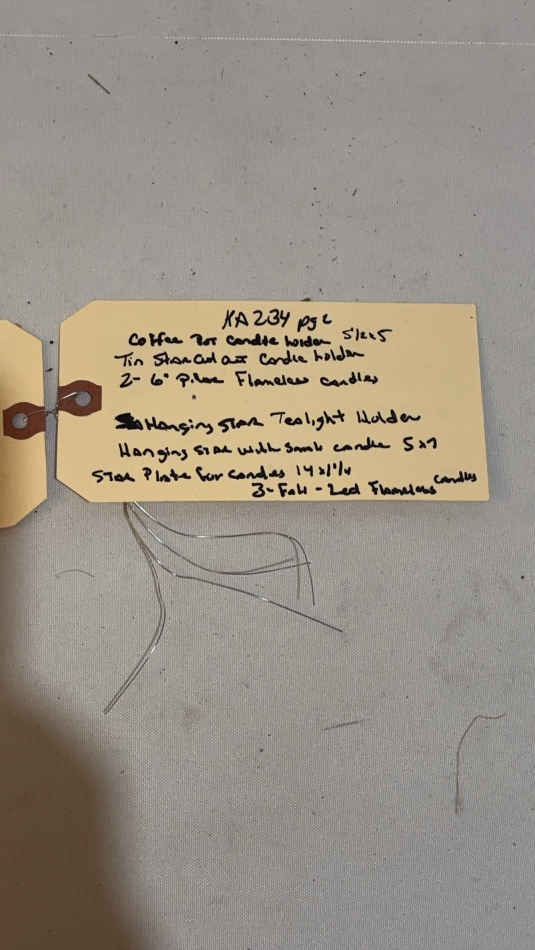 KA234 pg 2
Coffee Pot candle holder 5 1/2 x 5
Tin Star Cut out Candle holder
2- 6" Pillar Flameless candles
Hanging Star Tealight Holder
Hanging Star with Small candle 5x7
Star Plate for candles 14 x
3- Fall - Led Flameless candles